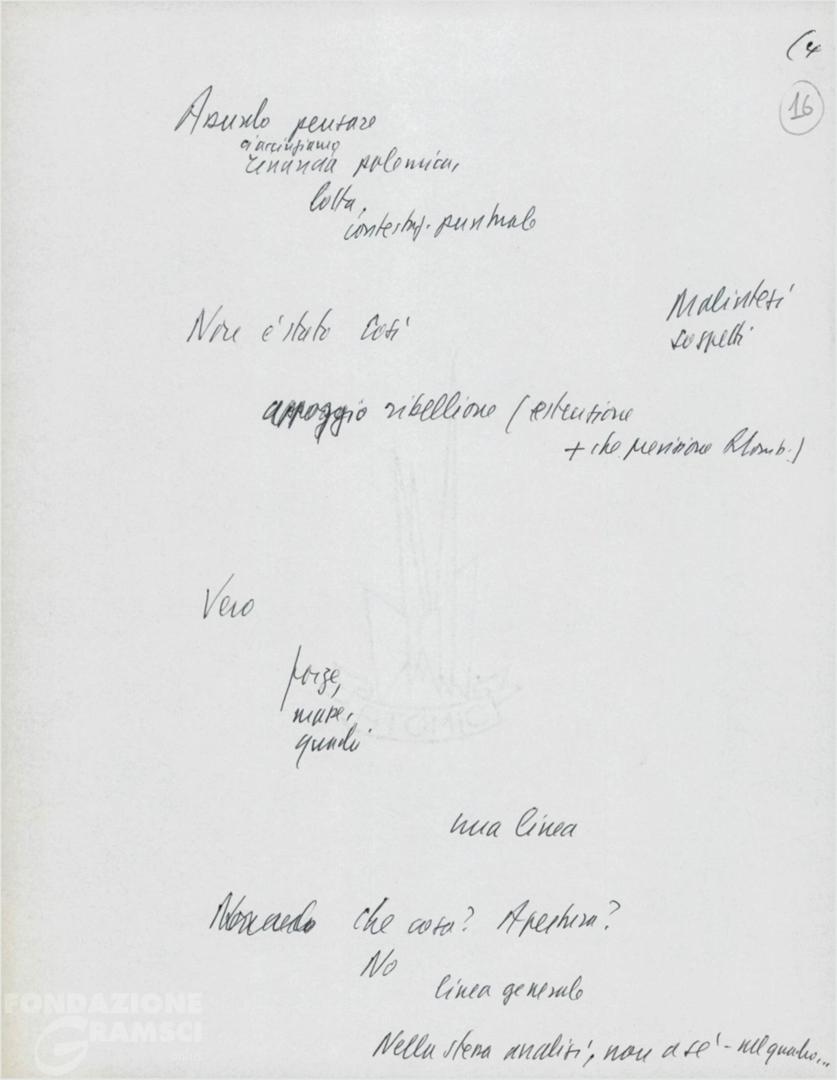 (4
16
Assurdo pensare
ci accingiamo
rinuncia polemica,
lotta,
contestaz. puntuale
Malintesi
sospetti
Non è stato così
appoggio ribellione (estensione
+ che previsione Rlomb.)
Vero
forze,
masse,
quadri
una linea
che cosa? Apertura?
No
linea generale
Nella stessa analisi, non a sé - nel quadro...
FONDAZIONE
GRAMSCI